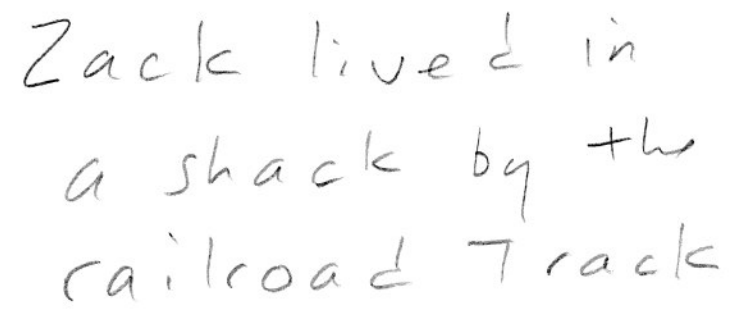 Zack lived in
a shack by the
railroad Track